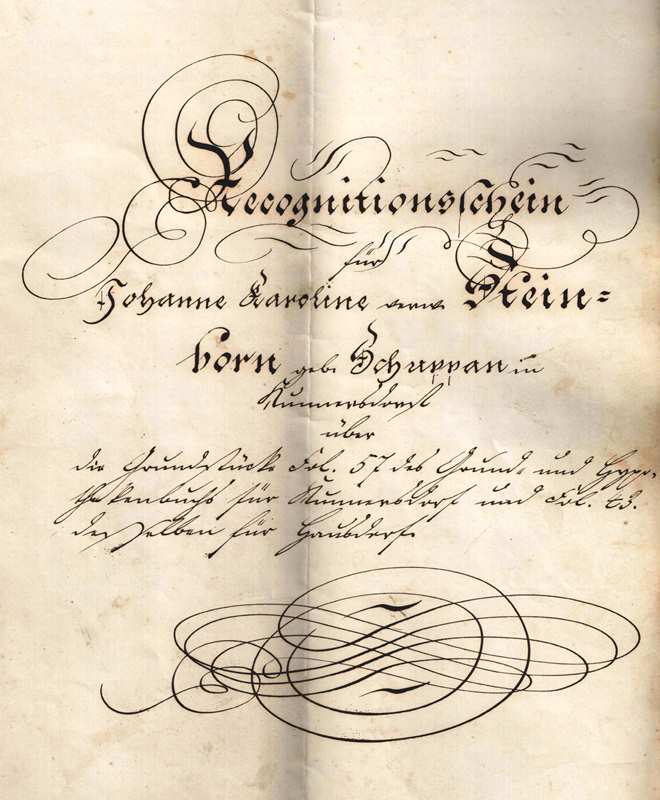 Recognitionsschein
für
Johanne Karoline verw. Stein=
born geb. Schuppan in
Kunnersdorf
über
die Grundstücke Fol. 57 des Grund- und Hypo-
thekenbuchs für Kunnersdorf und Fol. 43.
desselben für Hausdorf.